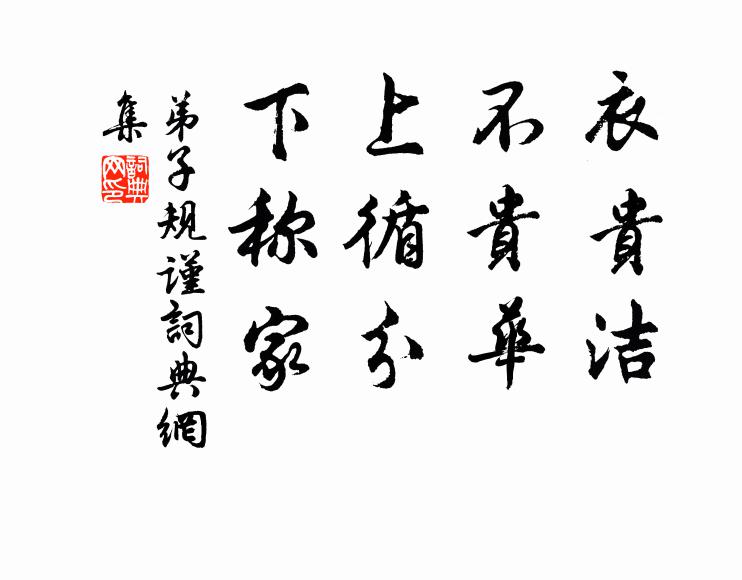 衣貴洁
不貴華
上循分
下称家
弟子规謹詞典網
集
詞典网印